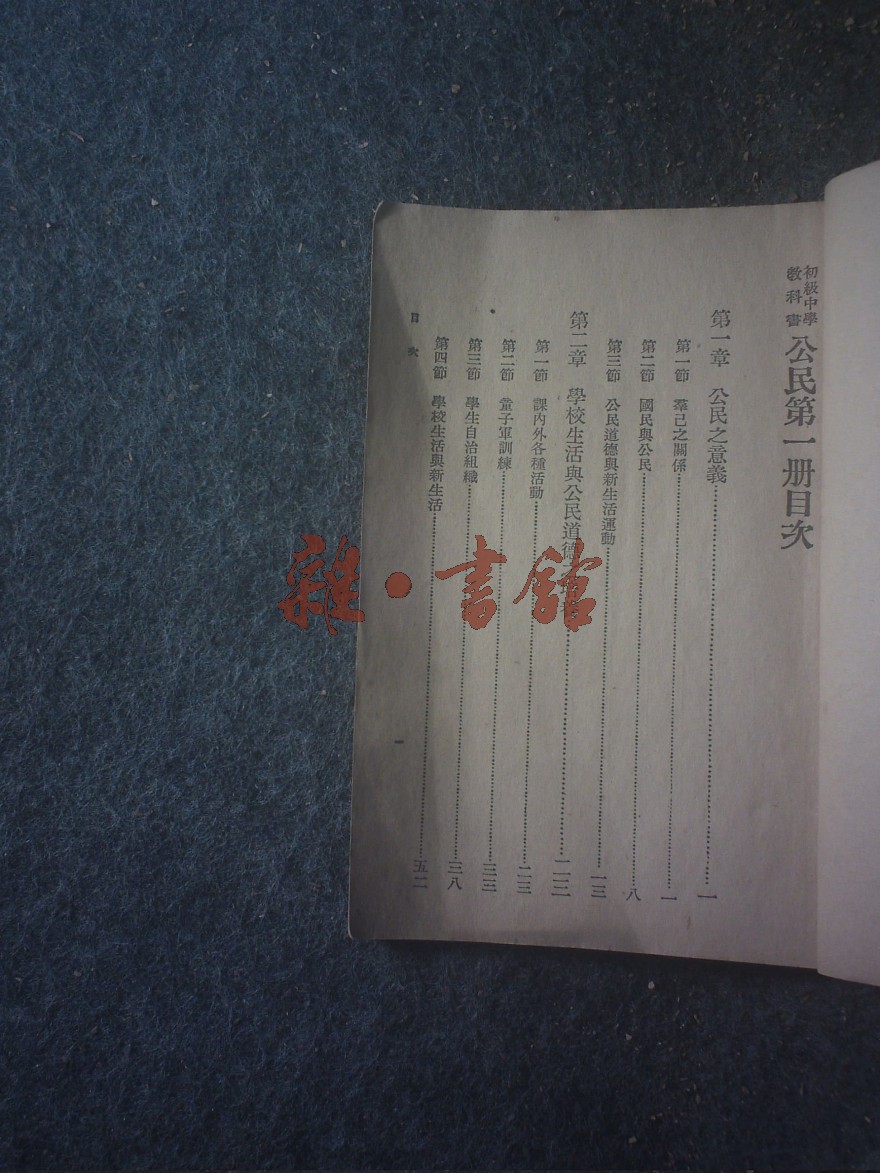 初級中學
教科書
公民第一册目次
第一章 公民之意義 一
第一節 羣己之關係 一
第二節 國民與公民 八
第三節 公民道德與新生活運動 一三
第二章 學校生活與公民道德 二三
第一節 課內外各種活動 二三
第二節 童子軍訓練 三三
第三節 學生自治組織 三八
第四節 學校生活與新生活 五二
目次
一
雜·書館